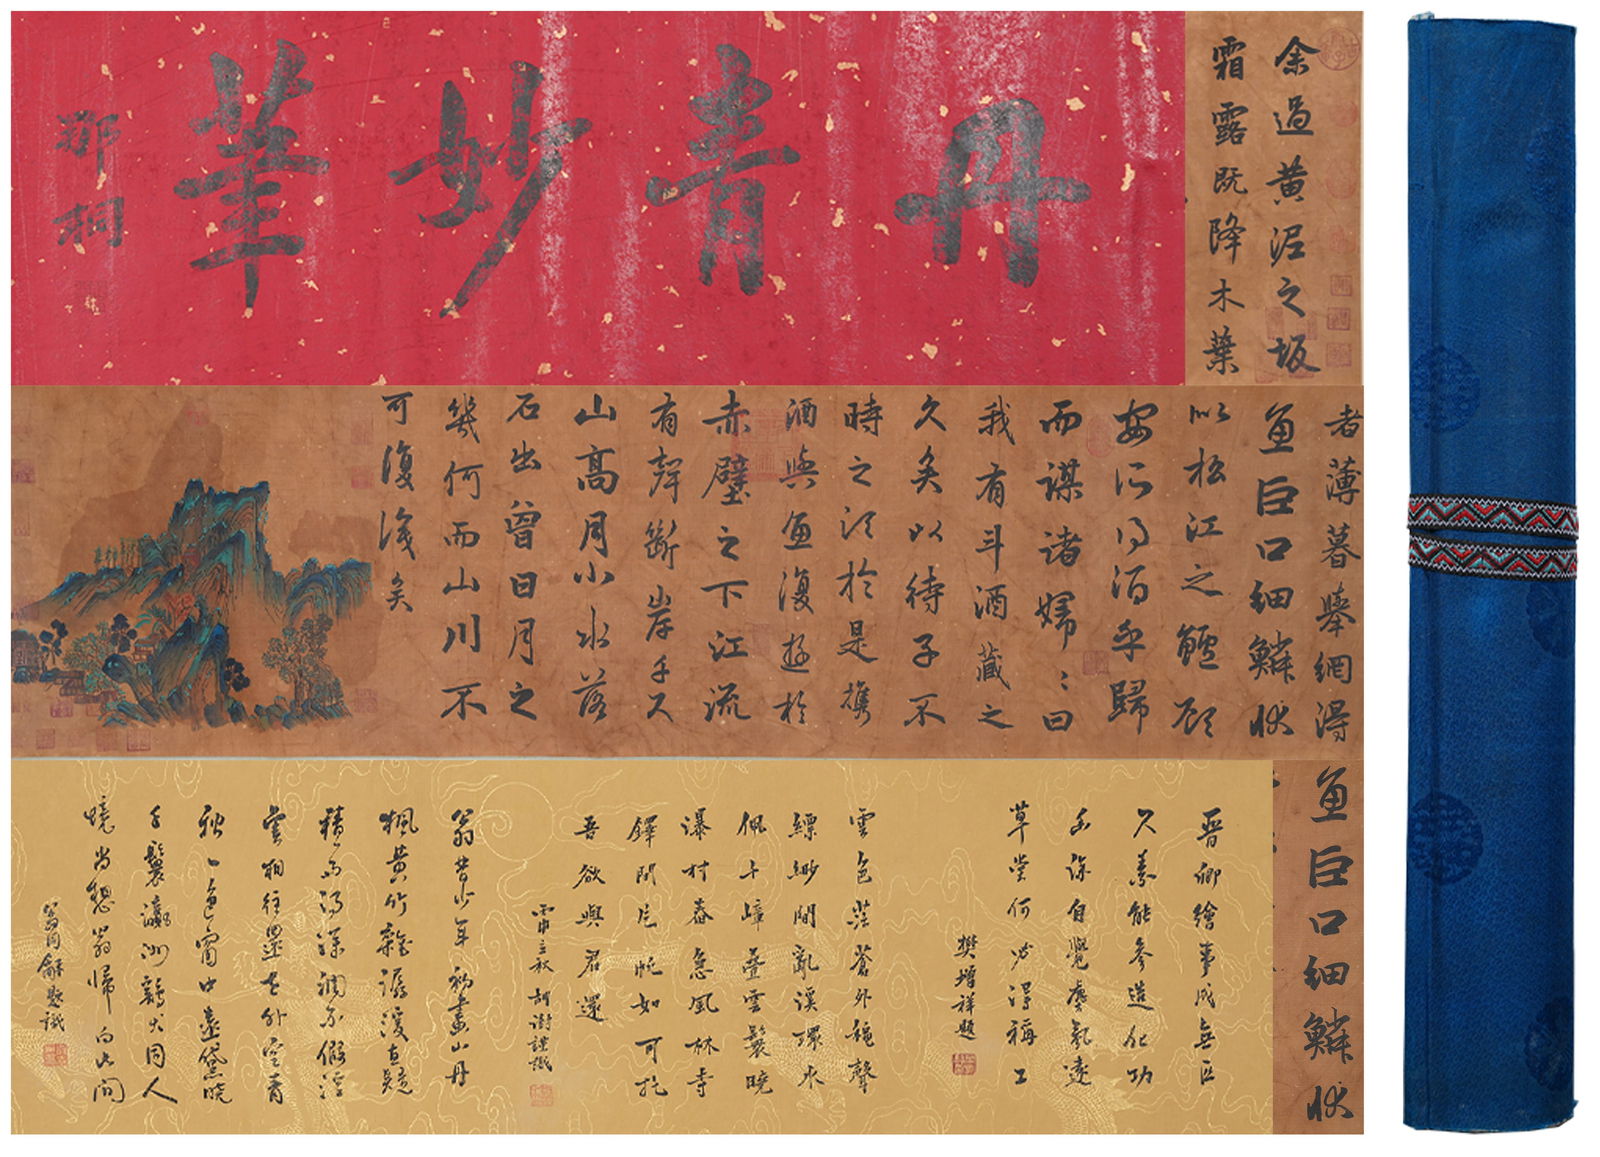 余過黃泥之坂
霜露既降木葉
丹青妙筆
那桐
者薄暮舉網得
魚巨口細鱗狀
似松江之鱸顧
安所得酒乎歸
而謀諸婦〻曰
我有斗酒藏之
久矣以待子不
時之須於是攜
酒與魚復遊於
赤壁之下江流
有聲斷岸千尺
山高月小水落
石出曾日月之
幾何而山川不
可復識矣
魚巨口細鱗狀
晉卿繪事成無匹
久養能參造化功
深自覺塵氣遠
草堂何必得稱工
樊增祥題
雲色茫蒼外穐聲
縹緲間亂溪環水
佩千嶂疊雲鬟曉
瀑村舂急風林寺
鐸閒帆如可托
吾欲與君還
立秋胡澍謹識
翁昔少年初畫山丹
楓黃竹雜潺湲直疑
積雨得深潤不假淫
雲相往還外空青
秋一色窗中遠黛曉
千鬟瀛洲雞犬同人
境尚想翁歸向此間
翁同龢題識